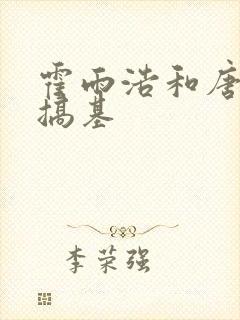 霍雨浩和唐
搞基
李荣强